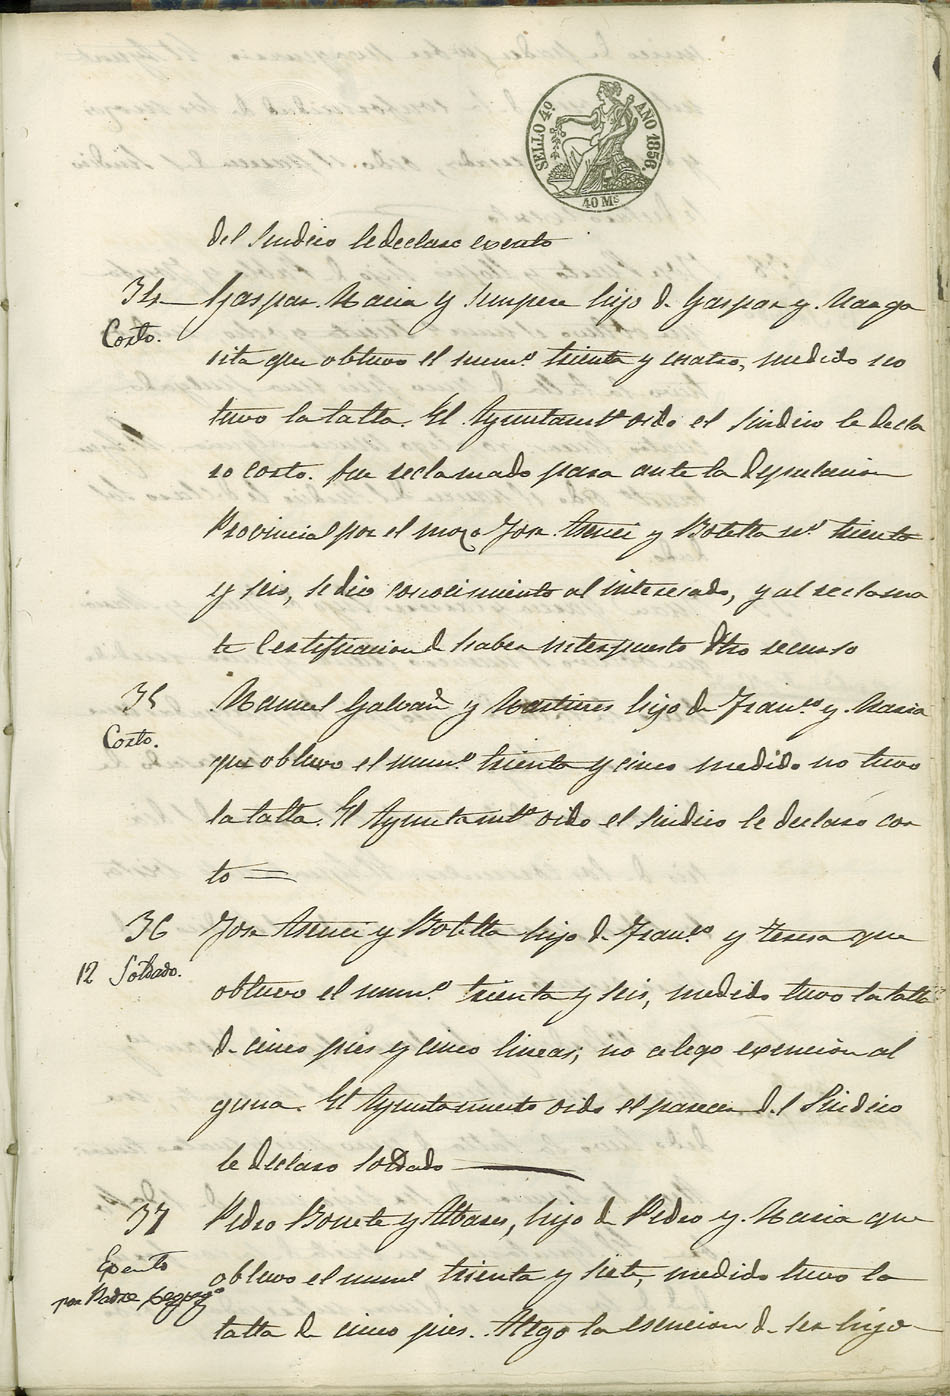 SELLO 4º AÑO 1856.
40 Mˢ
del Sindico le declaro exento
34 Gaspar Macia y Sempere hijo de Gaspar y Marga
Corto.
rita que obtuvo el numº treinta y cuatro, medido no
tuvo la talla. El Ayuntamtº oido el Sindico le decla
ro corto. fue reclamado para ante la Diputacion
Provincial por el mozo Jose Asenci y Botella nº treinta
y seis, se dio conocimiento al interesado, y al reclaman
te Certificacion de haber interpuesto dho recurso
35 Manuel Galvañ y Martines hijo de Franco y Maria
Corto.
que obtuvo el numº treinta y cinco medido no tuvo
la talla. El Ayuntamtº oido el Sindico le declaro cor
to =
36 Jose Asenci y Botella hijo de Franco y Teresa que
12 Soldado.
obtuvo el numº treinta y seis, medido tuvo la talla
de cinco pies y cinco lineas, no alego exencion al
guna. El Ayuntamiento oido el parecer del Sindico
le declaro soldado
37 Pedro Bonete y Albares, hijo de Pedro y Maria que
Exento
obtuvo el numº treinta y siete, medido tuvo la
por Padre sexagº
talla de cinco pies. Alego la esencion de ser hijo